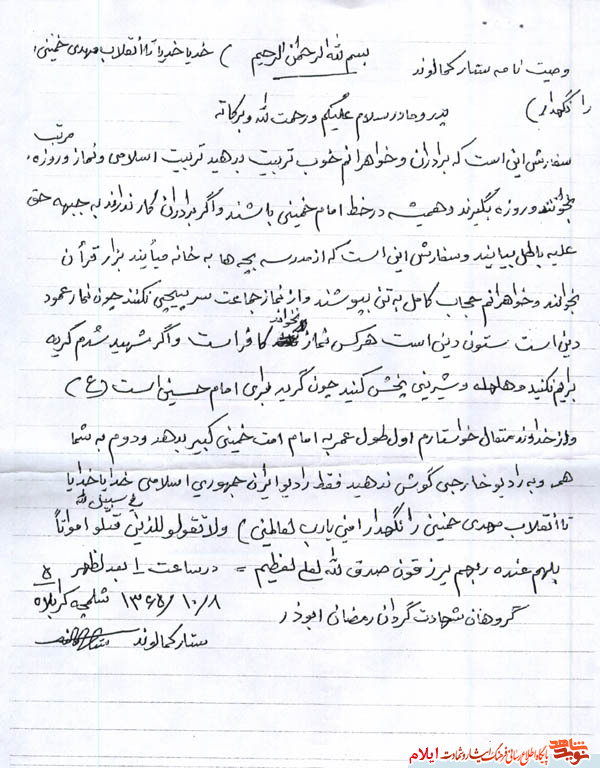 بسم الله الرحمن الرحیم ) خدایا خدایا تا انقلاب مهدی خمینی
وصیت نامه ستار کمالوند
را نگهدار )
پدر و مادر سلام علیکم و رحمت لله و برکاته
مرتب
سفارشی این است که برادران و خواهرانم خوب تربیت بدهید تربیت اسلامی و نماز و روزه
بخوانند و روزه بگیرند و همیشه در خط امام خمینی باشند و اگر برادران کار ندارند به جبهه حق
علیه باطل بیایند و سفارشی این است که از مدرسه بچه ها به خانه میآیند بزار قرأن
بخوانند و خواهرانم حجاب کامل به تن بپوشند و از نماز جماعت سرپیچی نکنند چون نماز عمود
دین است ستون دین است هر کس نماز نخواند کافر است و اگر شهید شدم گریه
برایم نکنید و هلهله و شیرینی پخش کنید چون گریه برای امام حسینی است (ع)
و از خداوند متعال خواستارم اول طول عمر به امام امت خمینی کبیر بدهد و دوم به شما
همه و به رادیو خارجی گوش ندهید فقط رادیو ایران جمهوری اسلامی خدایا خدایا
تا انقلاب مهدی خمینی را نگهدار امنی یارب لعالمنی ) ولا تقولو للذین قتلو فی سبیل لله امواتاً
بلهم عنده ربهم یرزقون صدق لله لعلی لعظیم = در ساعت ۱ بعد لظهر
۱۳۶۵/۱۰/۸ شلمچه کربلا ۵
گروهان شهادت گردان رمضانی ابوذر
ستار کمالوند
نوید شاهد پایگاه اطلاع رسانی فرهنگ ایثار و شهادت ایلام